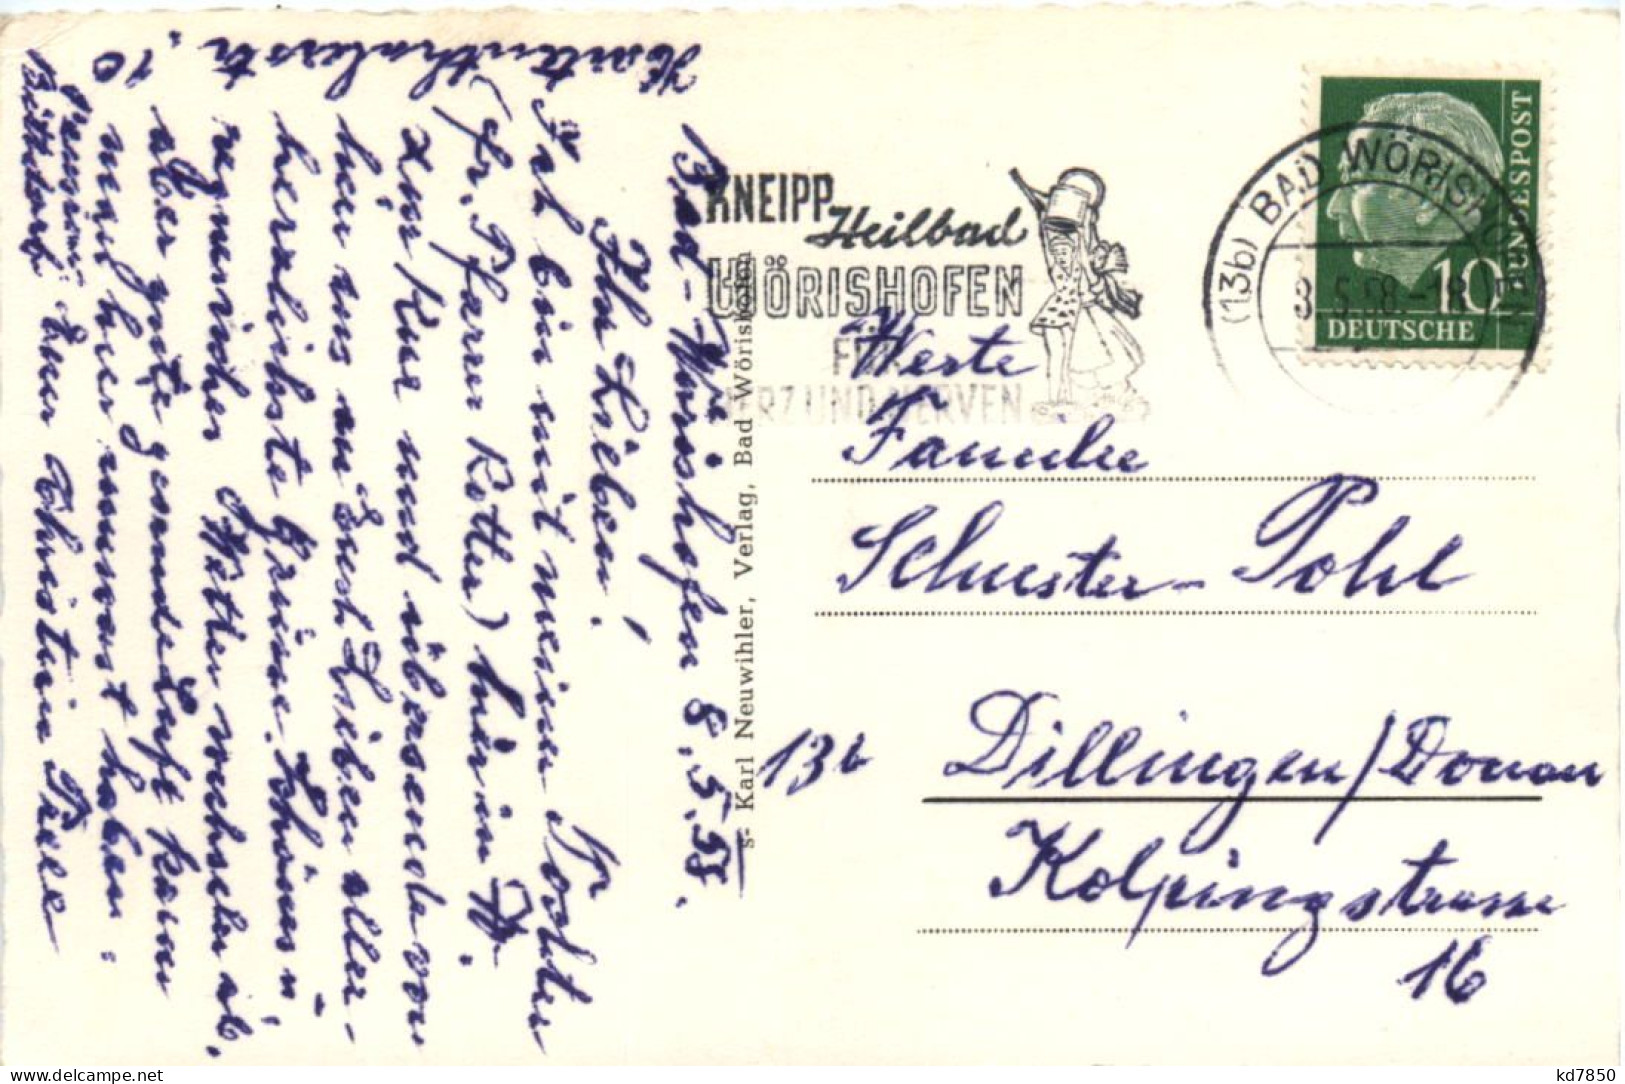 Bad-Wörishofen 8.5.58.
Ihr Lieben!
Ich bin mit meiner Tochter Fr.
(Fr. Pfarrer Rotter) hier in W.
zur Kur und übersende von
hier uns an Euch Lieben aller-
herzlichste Grüsse. Schönes u.
regnerisches Wetter wechseln ab.
aber gute gesunde Luft kann
man hier umsonst haben.
Pension: Eure Christine
10
KNEIPP
Heilbad
WÖRISHOFEN
FÜR
HERZ UND NERVEN
(13b) BAD WÖRISHOFEN
8.5.58-18
DEUTSCHE
BUNDESPOST
10
s- Karl Neuwihler, Verlag, Bad Wörishofen
Werte
Familie
Schuster-Pohl
13b Dillingen/Donau
Kolpingstrasse
16
kd7850